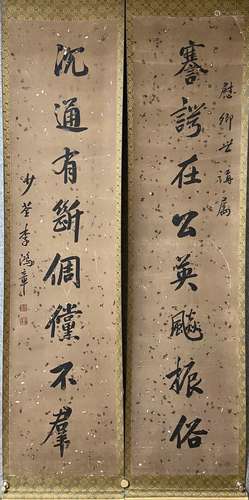 慰卿世講屬
謇諤在公英飈振俗
沈通有斷倜儻不羣
少荃李鴻章